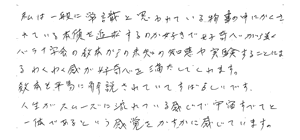 私は一般に常識と思われている物事の中にかくさ
れている本質を追求するのが好きで好奇心から
バライ の教本からの未知の知恵や実験することによ
るわくわく感が好奇心を満たしてくれます。
教本も平易に解説されていてすばらしいです。
人生がスムーズに流れている感じで宇宙すべてと
一体であるという感覚をかすかに感じています。